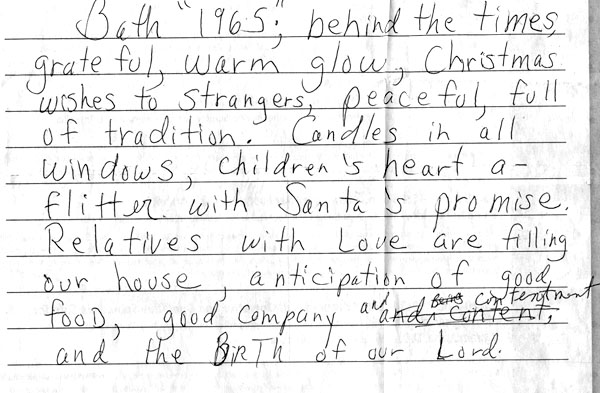 Bath "1965"; behind the times,
grateful, warm glow, Christmas
wishes to strangers, peaceful, full
of tradition. Candles in all
windows, children's heart a-
flitter with Santa's promise.
Relatives with Love are filling
our house, anticipation of good
food, good company and contentment
and the BIRTH of our Lord.